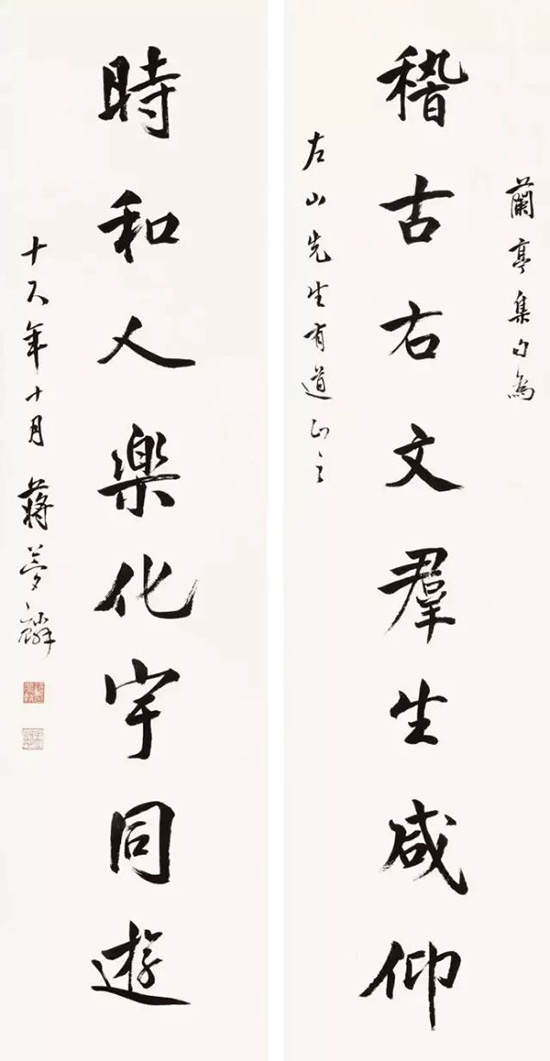 蘭亭集句為
稽古右文羣生咸仰
左山先生有道正之
時和人樂化宇同遊
十八年十月蔣夢麟